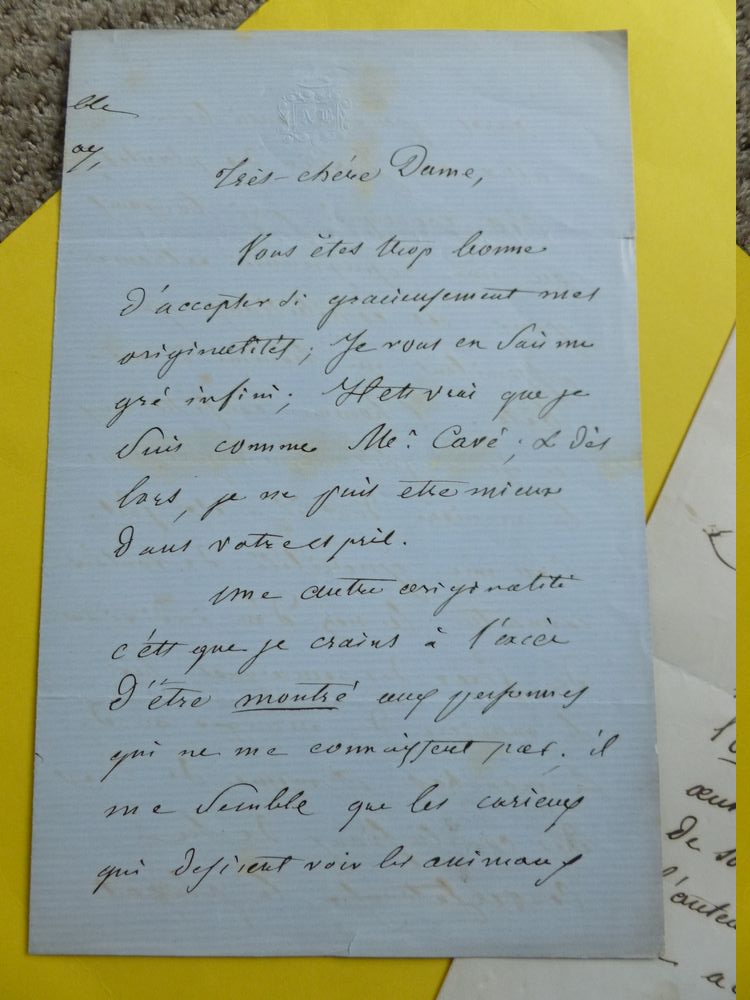 lle
oy,
Très-chére Dame,
Vous êtes trop bonne
d'accepter si gracieusement mes
originalités; Je vous en sais un
gré infini; Il est vrai que je
suis comme Mr. Cavé; & dès
lors, je ne puis etre mieux
dans votre esprit.
une autre originalité
c'est que je crains à l'excès
d'être montré aux personnes
qui ne me connaissent pas. il
me semble que les curieux
qui desirent voir les animaux
l'o
œu
de so
l'auteu
a